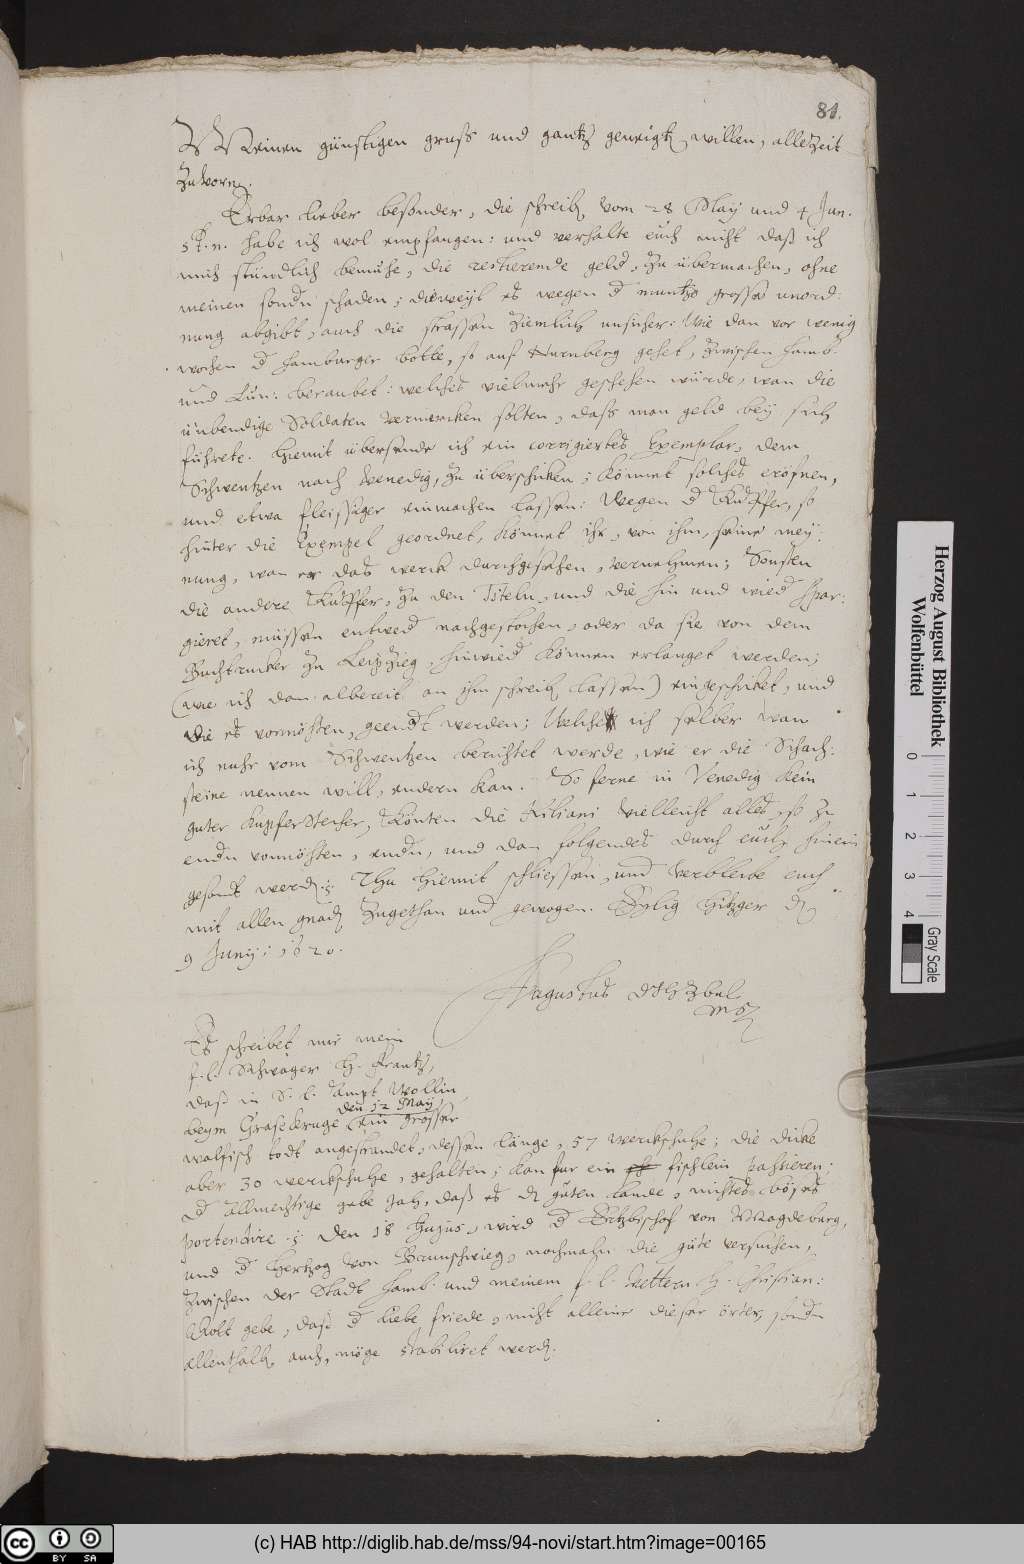 81.
Meinen günstigen gruß und gantz geneigtẽ willen, allezeit
Zuvorn.
Erbar lieber besonder, die schreibẽ vom 28 May und 4 Jun.
habe ich wol empfangen: und verhalte euch nicht daß ich
mich stündlich bemühe, die restierende geld, zu übermachen, ohne
meinen sondn schaden; dieweyl es wegen d müntze grosse unord:
nung abgibt, auch die strassen ziemlich unsicher: Wie dan vor wenig
wochen d Hamburger botte, so auf Nurnberg gehet, zwischen Hamb.
und Lün: beraubet: welches vielmehr geschehen würde, wan die
unbendige Soldaten vermercken solten, dass man geld bey sich
führete. Hiemit übersende ich ein corrigiertes Exemplar, dem
Schwentzen nach Venedig, zu überschicken; könnet solches eröfnen,
und etwa fleissiger einmachen lassen: Wegen d Kupffer, so
hinter die Exempel geordnet, könnet ihr, von ihm, seine mey:
nung, wan er das werck durchgesehen, vernehmen; Sonsten
die andere Kupffer, zu den Titeln, und die hin und wied spar:
gieret, müssen entwed nachgestochen, oder da sie von dem
Buchtrucker zu Leipzieg, hinwied können erlanget werden;
(wie ich dan albereit an ihm schreibẽ lassen) eingeschicket, und
die es vonnöhten, geendt werden; Welches ich selber wan
ich nuhr vom Schwentzen berichtet werde, wie er die Schach:
steine nennen will, endern kan. So ferne in Venedig kein
guter Kupferstecher, Könten die Kiliani vielleicht alles, so zu
endn vonnöhten, endn, und dan folgendes durch euch hinein
gesandt werdẽ: Thu hiemit schliessen, und verbleibe euch
mit allen gnadẽ zugethan und gewogen. Eylig Hitzger dẽ
9 Junij: 1620.
Augustus DIHZBuL
mp
Es schreibet mir mein
f. l. Schwager H. Frantz,
daß in S. L. Ampt Wollin
beym Grasekruge den 12 May, ein grosser
walfisch todt angestrandet, dessen länge, 57 werckschuhe; die dicke
aber 30 werckschuhe, gehalten; kan fur ein fischlein passieren;
d Allmechtige gebe Jah, daß es dẽ guten lande, nichtes böses
portendire: Den 18 hujus, wird d Ertzbischof von Magdeburg,
und d Hertzog von Braunschwieg, nochmaln die güte versuchen,
zwischen der Stadt Hamb. und meinem f. l. Vettern H. Christian:
Gott gebe, daß d liebe friede, nicht alleine dieser örter, sondn
allenthalbẽ auch, möge stabiliret werdẽ.
Herzog August Bibliothek
Wolfenbüttel
0 1 2 3 4
Gray Scale
cc BY SA
(c) HAB http://diglib.hab.de/mss/94-novi/start.htm?image=00165